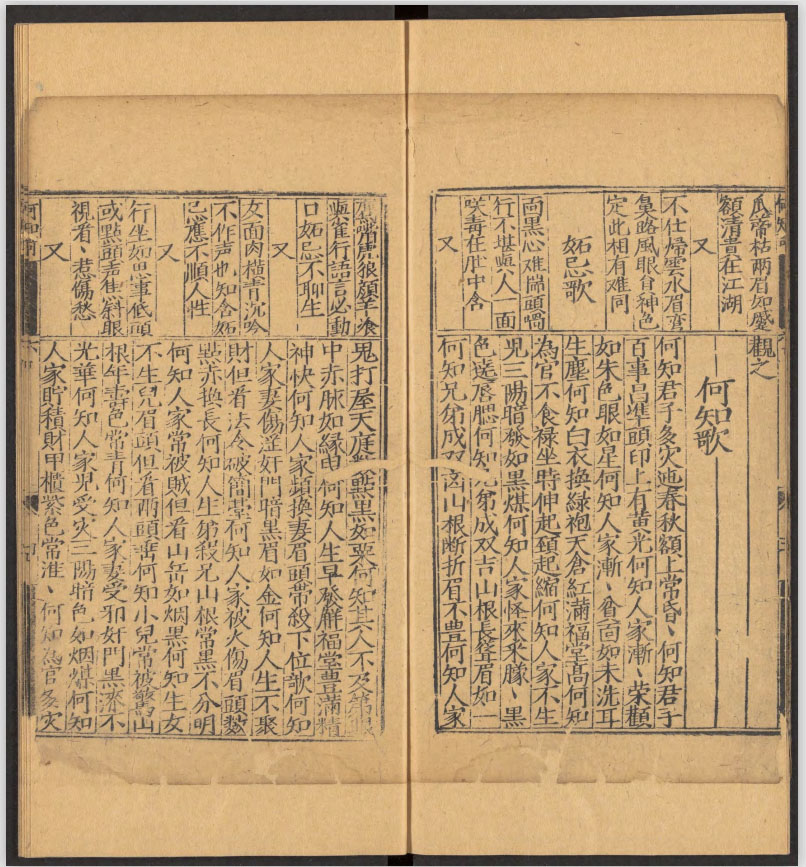 瓜蒂枯两眉如蹙
額清貴在江湖
又
不仕帰雲水眉弯
鼻路風眼自神色
定此相有难同
妬忌歌
面黒心难揣頭喎
行不堪與人一面
咲毒在肚中含
又
觀之
何知歌
何知君子多灾迍春秋額上常昏〻何知君子
百事昌準頭印上有黄光何知人家漸〻荣顴
如朱色眼如星何知人家漸〻貧面如未洗耳
生塵何知白衣换綠袍天倉紅滿福堂高何知
為官不食禄坐時伸起頚起縮何知人家不生
児三陽暗發如黒煤何知人家怪來來朦〻黒
色遶唇腮何知兄弟成双吉山根長聳眉如一
何知兄弟成双凶山根断折眉不豊何知人家
嘴虎狼顔辛飡
與雀行語言必動
口妬忌不聊生
又
女面肉横青沉吟
不作声也知含妬
忌應不順人性
又
行坐如思事低頭
或點頭舌焦斜眼
視看〻惹傷愁
又
鬼打屋天庭數點黒如粟何知其人不及第眼
中赤脉如縁曳何知人生早發觧福堂豊滿精
神快何知人家頻换妻眉頭常殺下位歌何知
人家妻傷淫奸門暗黒眉如金何知人生不聚
財但看法令破簡䑓何知人家被火傷眉頭數
點赤换長何知人生弟殺兄山根常黒不分明
何知人家常被賊但看山岳如烟黒何知生女
不生兒眉頭但看两頭垂何知小兒常被驚山
根年寿色常青何知人家妻受邪奸門黒㾗不
光華何知人家児受灾三陽暗色如烟煤何知
人家貯積財甲櫃紫色常淮〻何知為官多灾